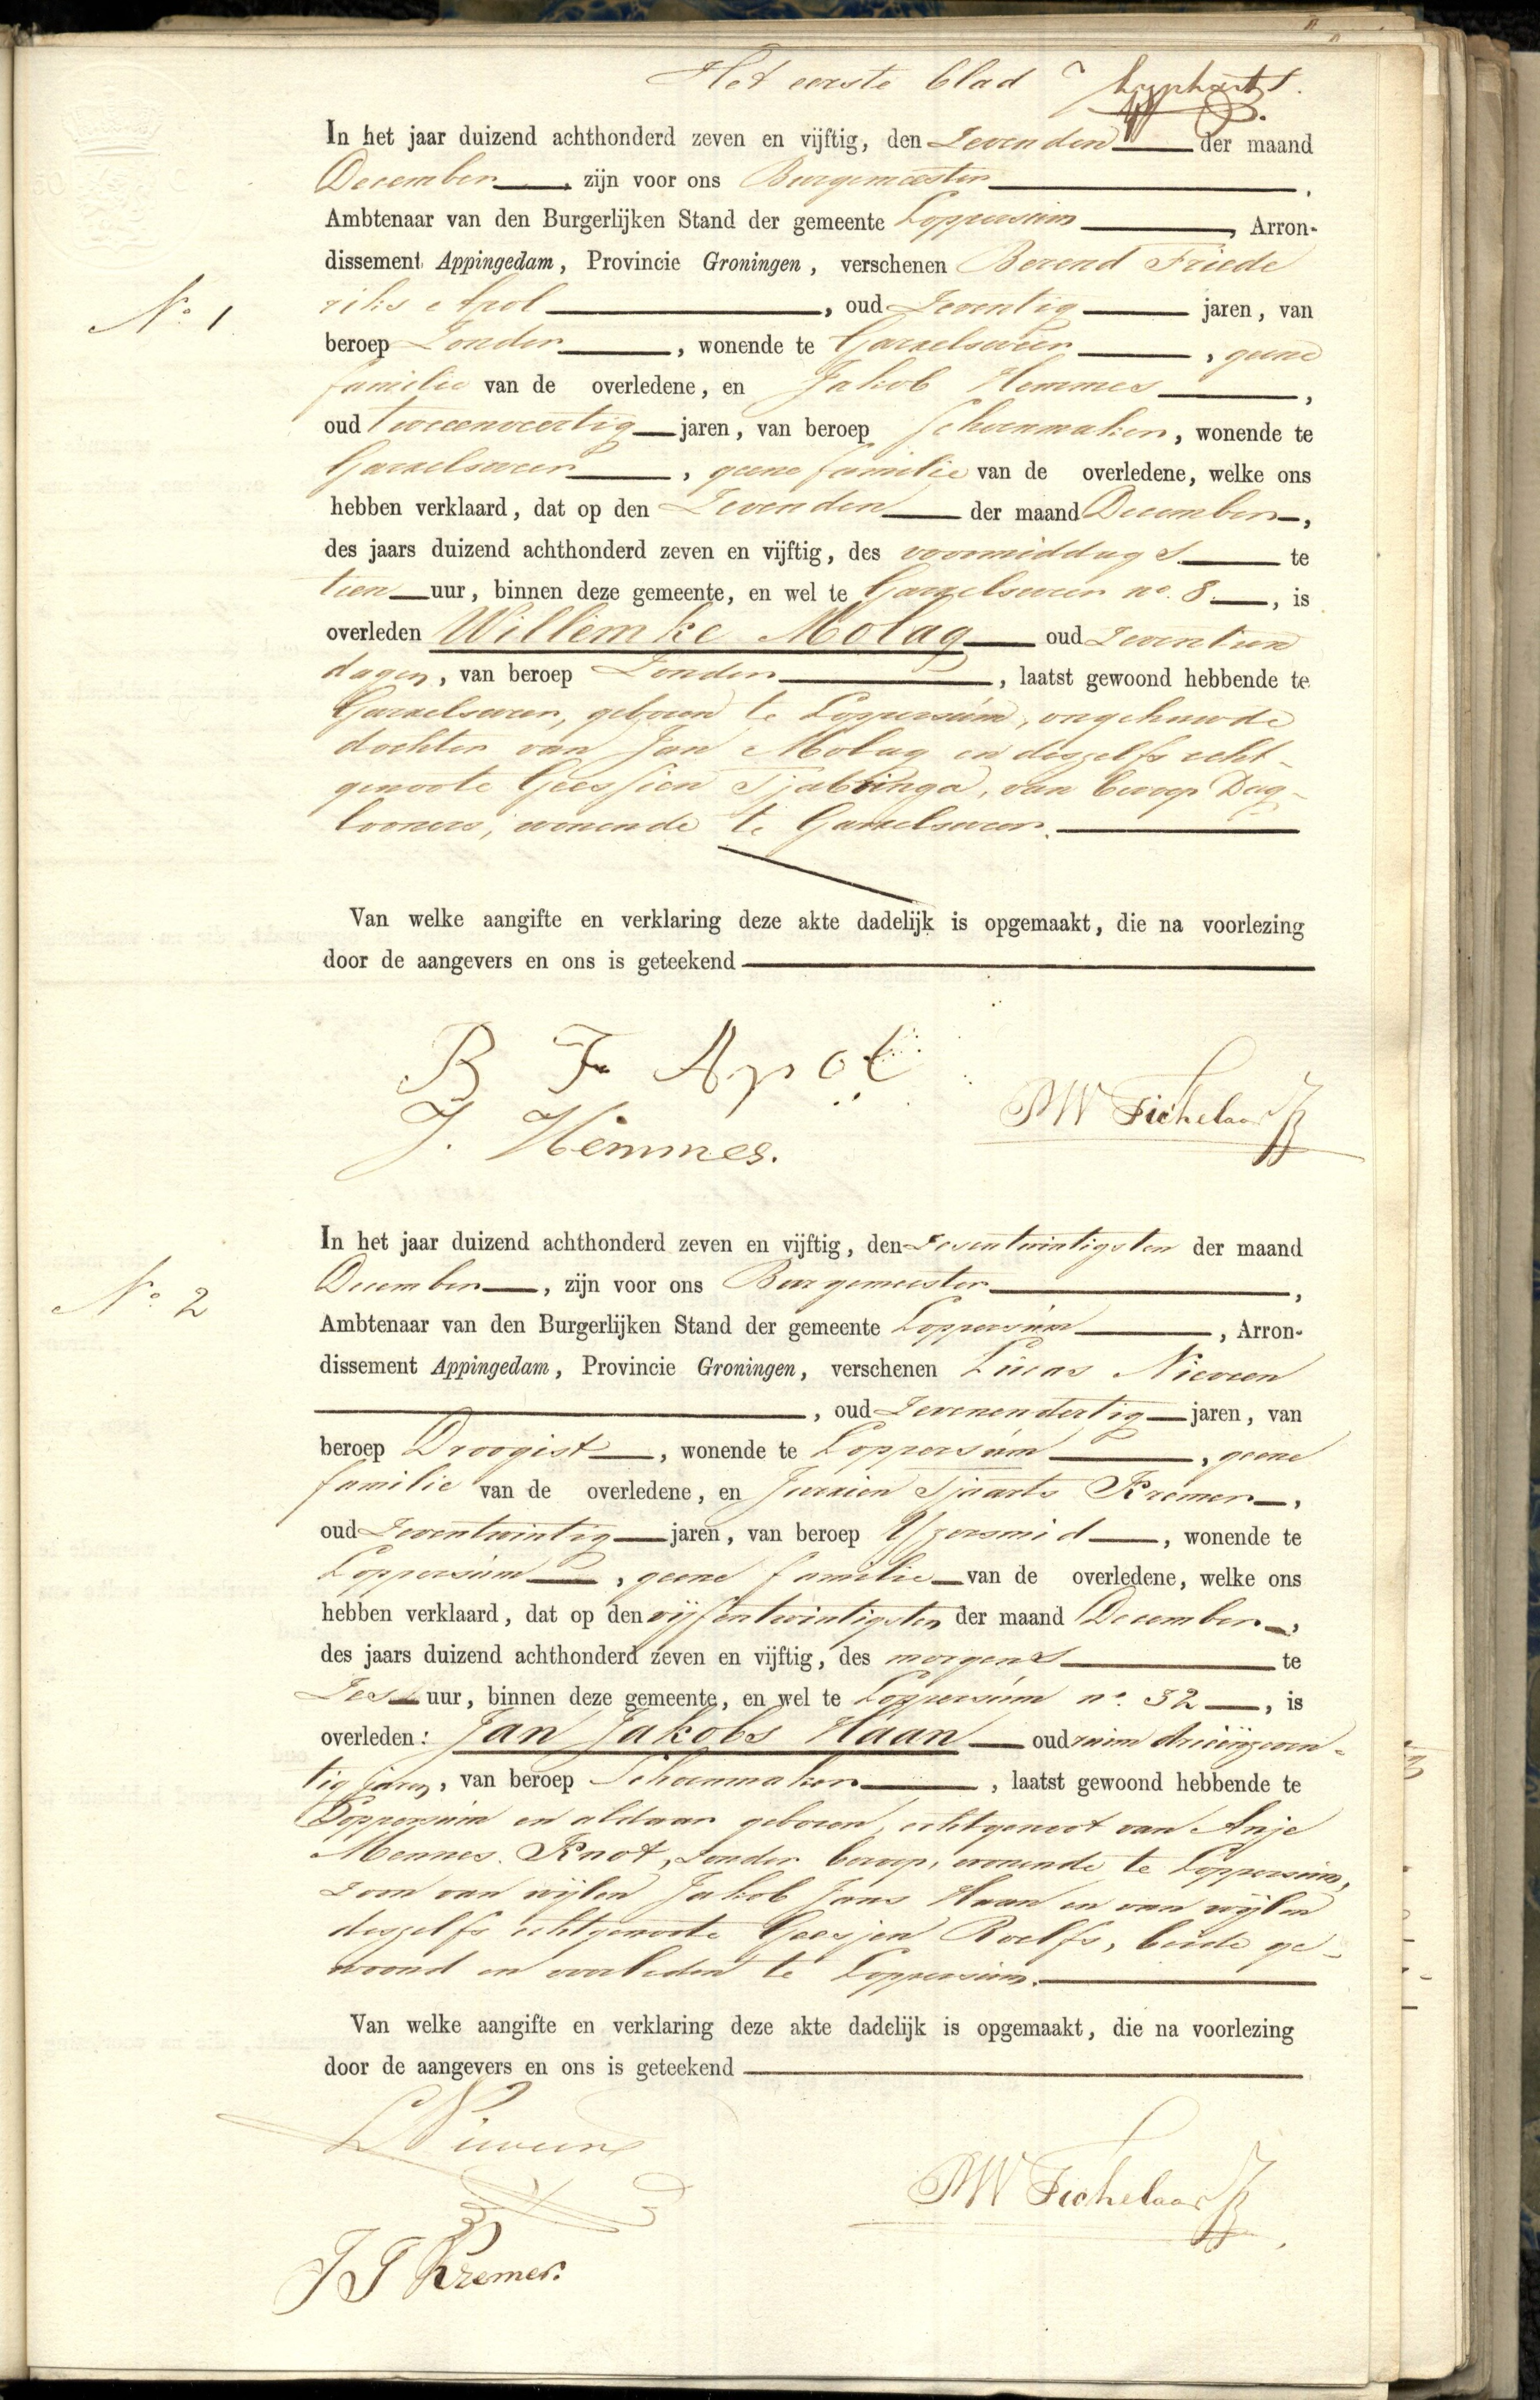 Het eerste blad
In het jaar duizend achthonderd zeven en vijftig, den Zevenden der maand
December, zijn voor ons Burgemeester,
Ambtenaar van den Burgerlijken Stand der gemeente Loppersum, Arron-
dissement Appingedam, Provincie Groningen, verschenen Berend Friede
N.o 1
riks Apol, oud Zeventig jaren, van
beroep Zonder, wonende te Garrelsweer, geene
familie van de overledene, en Jakob Hemmes,
oud tweeenveertig jaren, van beroep Schoenmaker, wonende te
Garrelsweer, geene familie van de overledene, welke ons
hebben verklaard, dat op den Zevenden der maand December,
des jaars duizend achthonderd zeven en vijftig, des voormiddags te
tien uur, binnen deze gemeente, en wel te Garrelsweer no. 8, is
overleden Willemke Molag oud Zeventien
dagen, van beroep Zonder, laatst gewoond hebbende te
Garrelsweer, geboren te Loppersum, ongehuwde
dochter van Jan Molag en deszelfs echt-
genoote Geessien Tjabringa, van beroep Dag-
looners, wonende te Garrelsweer.
Van welke aangifte en verklaring deze akte dadelijk is opgemaakt, die na voorlezing
door de aangevers en ons is geteekend
B F Apol
J. Hemmes.
PW Fichelaar Jz
In het jaar duizend achthonderd zeven en vijftig, den Zesentwintigsten der maand
December, zijn voor ons Burgemeester,
N.o 2
Ambtenaar van den Burgerlijken Stand der gemeente Loppersum, Arron-
dissement Appingedam, Provincie Groningen, verschenen Lucas Nieveen
, oud Zevenendertig jaren, van
beroep Droogist, wonende te Loppersum, geene
familie van de overledene, en Jurrien Tjaarts Kremer,
oud Zeventwintig jaren, van beroep IJzersmid, wonende te
Loppersum, geene familie van de overledene, welke ons
hebben verklaard, dat op den vijfentwintigsten der maand December,
des jaars duizend achthonderd zeven en vijftig, des morgens te
Zes uur, binnen deze gemeente, en wel te Loppersum no. 32, is
overleden: Jan Jakobs Haan oud ruim drieënzeven-
tig jaren, van beroep Schoenmaker, laatst gewoond hebbende te
Loppersum en aldaar geboren, echtgenoot van Anje
Mennes Knot, zonder beroep, wonende te Loppersum,
zoon van wijlen Jakob Jans Haan en van wijlen
deszelfs echtgenoote Geesjen Roelfs, beide ge-
woond en overleden te Loppersum.
Van welke aangifte en verklaring deze akte dadelijk is opgemaakt, die na voorlezing
door de aangevers en ons is geteekend
L Nieveen
PW Fichelaar Jz
J T Kremer.